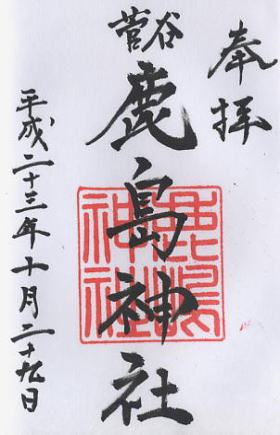 奉拝
菅谷
鹿島神社
鹿嶋神社
平成二十三年十月二十九日